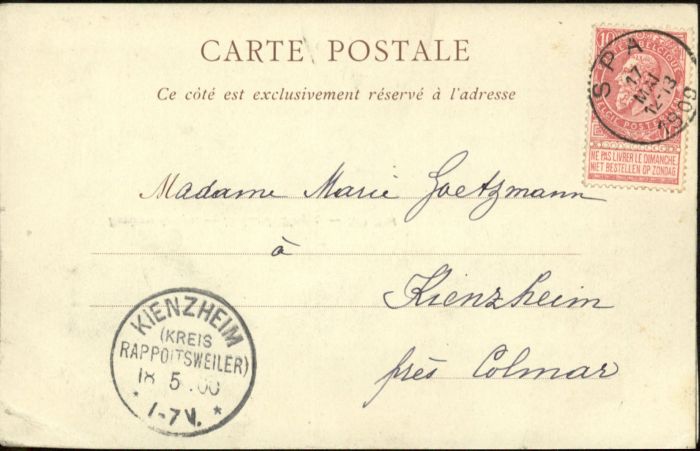 CARTE POSTALE
Ce côté est exclusivement réservé à l'adresse
10
SPA
17
MAI
12-13
1900
NE PAS LIVRER LE DIMANCHE
NIET BESTELLEN OP ZONDAG
Madame Marie Goetzmann
à
Kienzheim
près Colmar
KIENZHEIM
(KREIS
RAPPOLTSWEILER)
18 5 00
* 1-7V. *